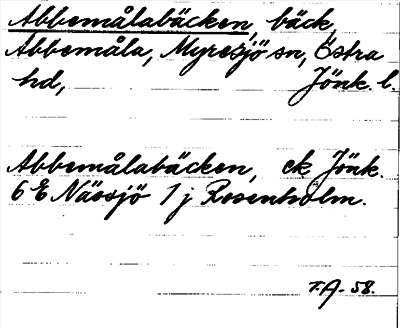 Abbemålabäcken, bäck,
Abbemåla, Myresjö sn, Östra
hd, Jönk. l.
Abbemålabäcken, ek Jönk.
6 E Nässjö 1 j Rosenholm.
T.A-58.